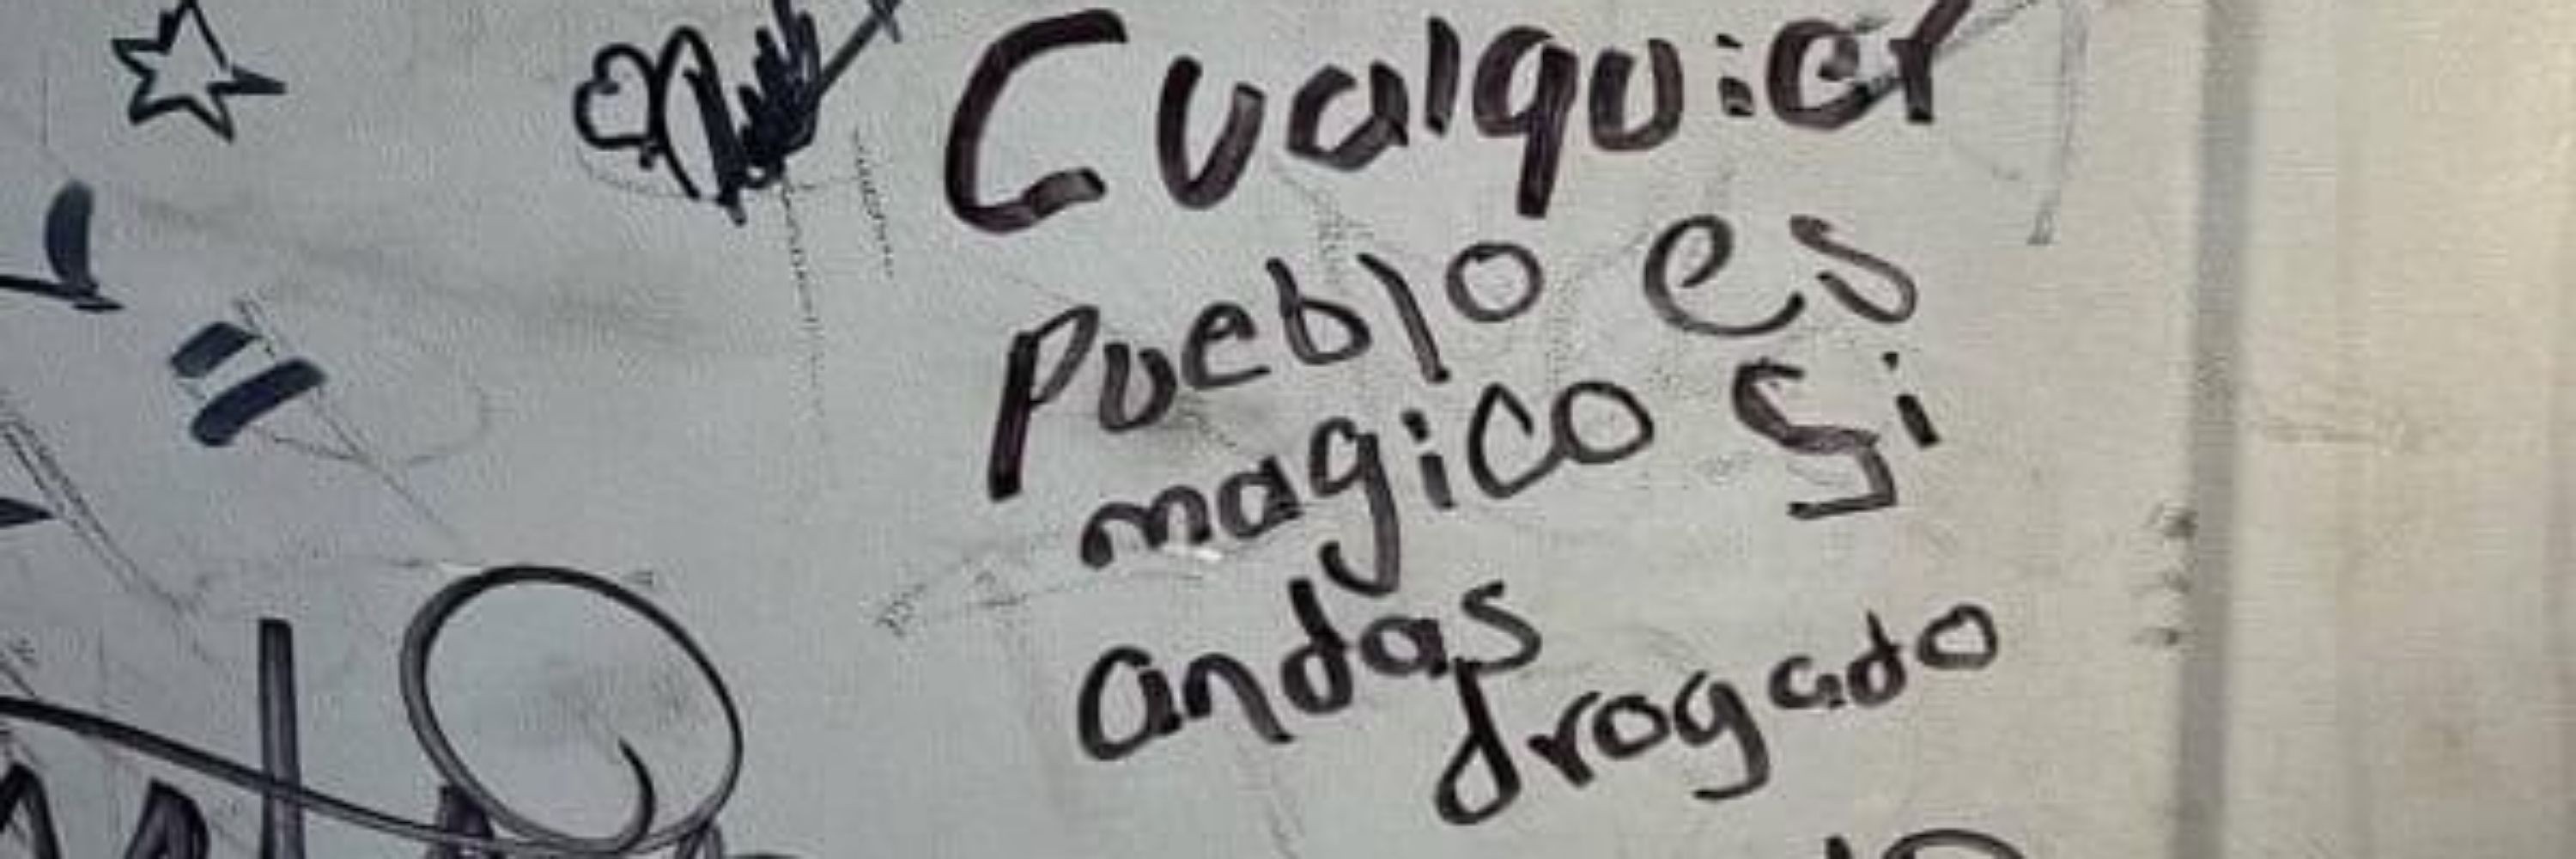 Cualquier
Pueblo es
magico si
andas
drogado